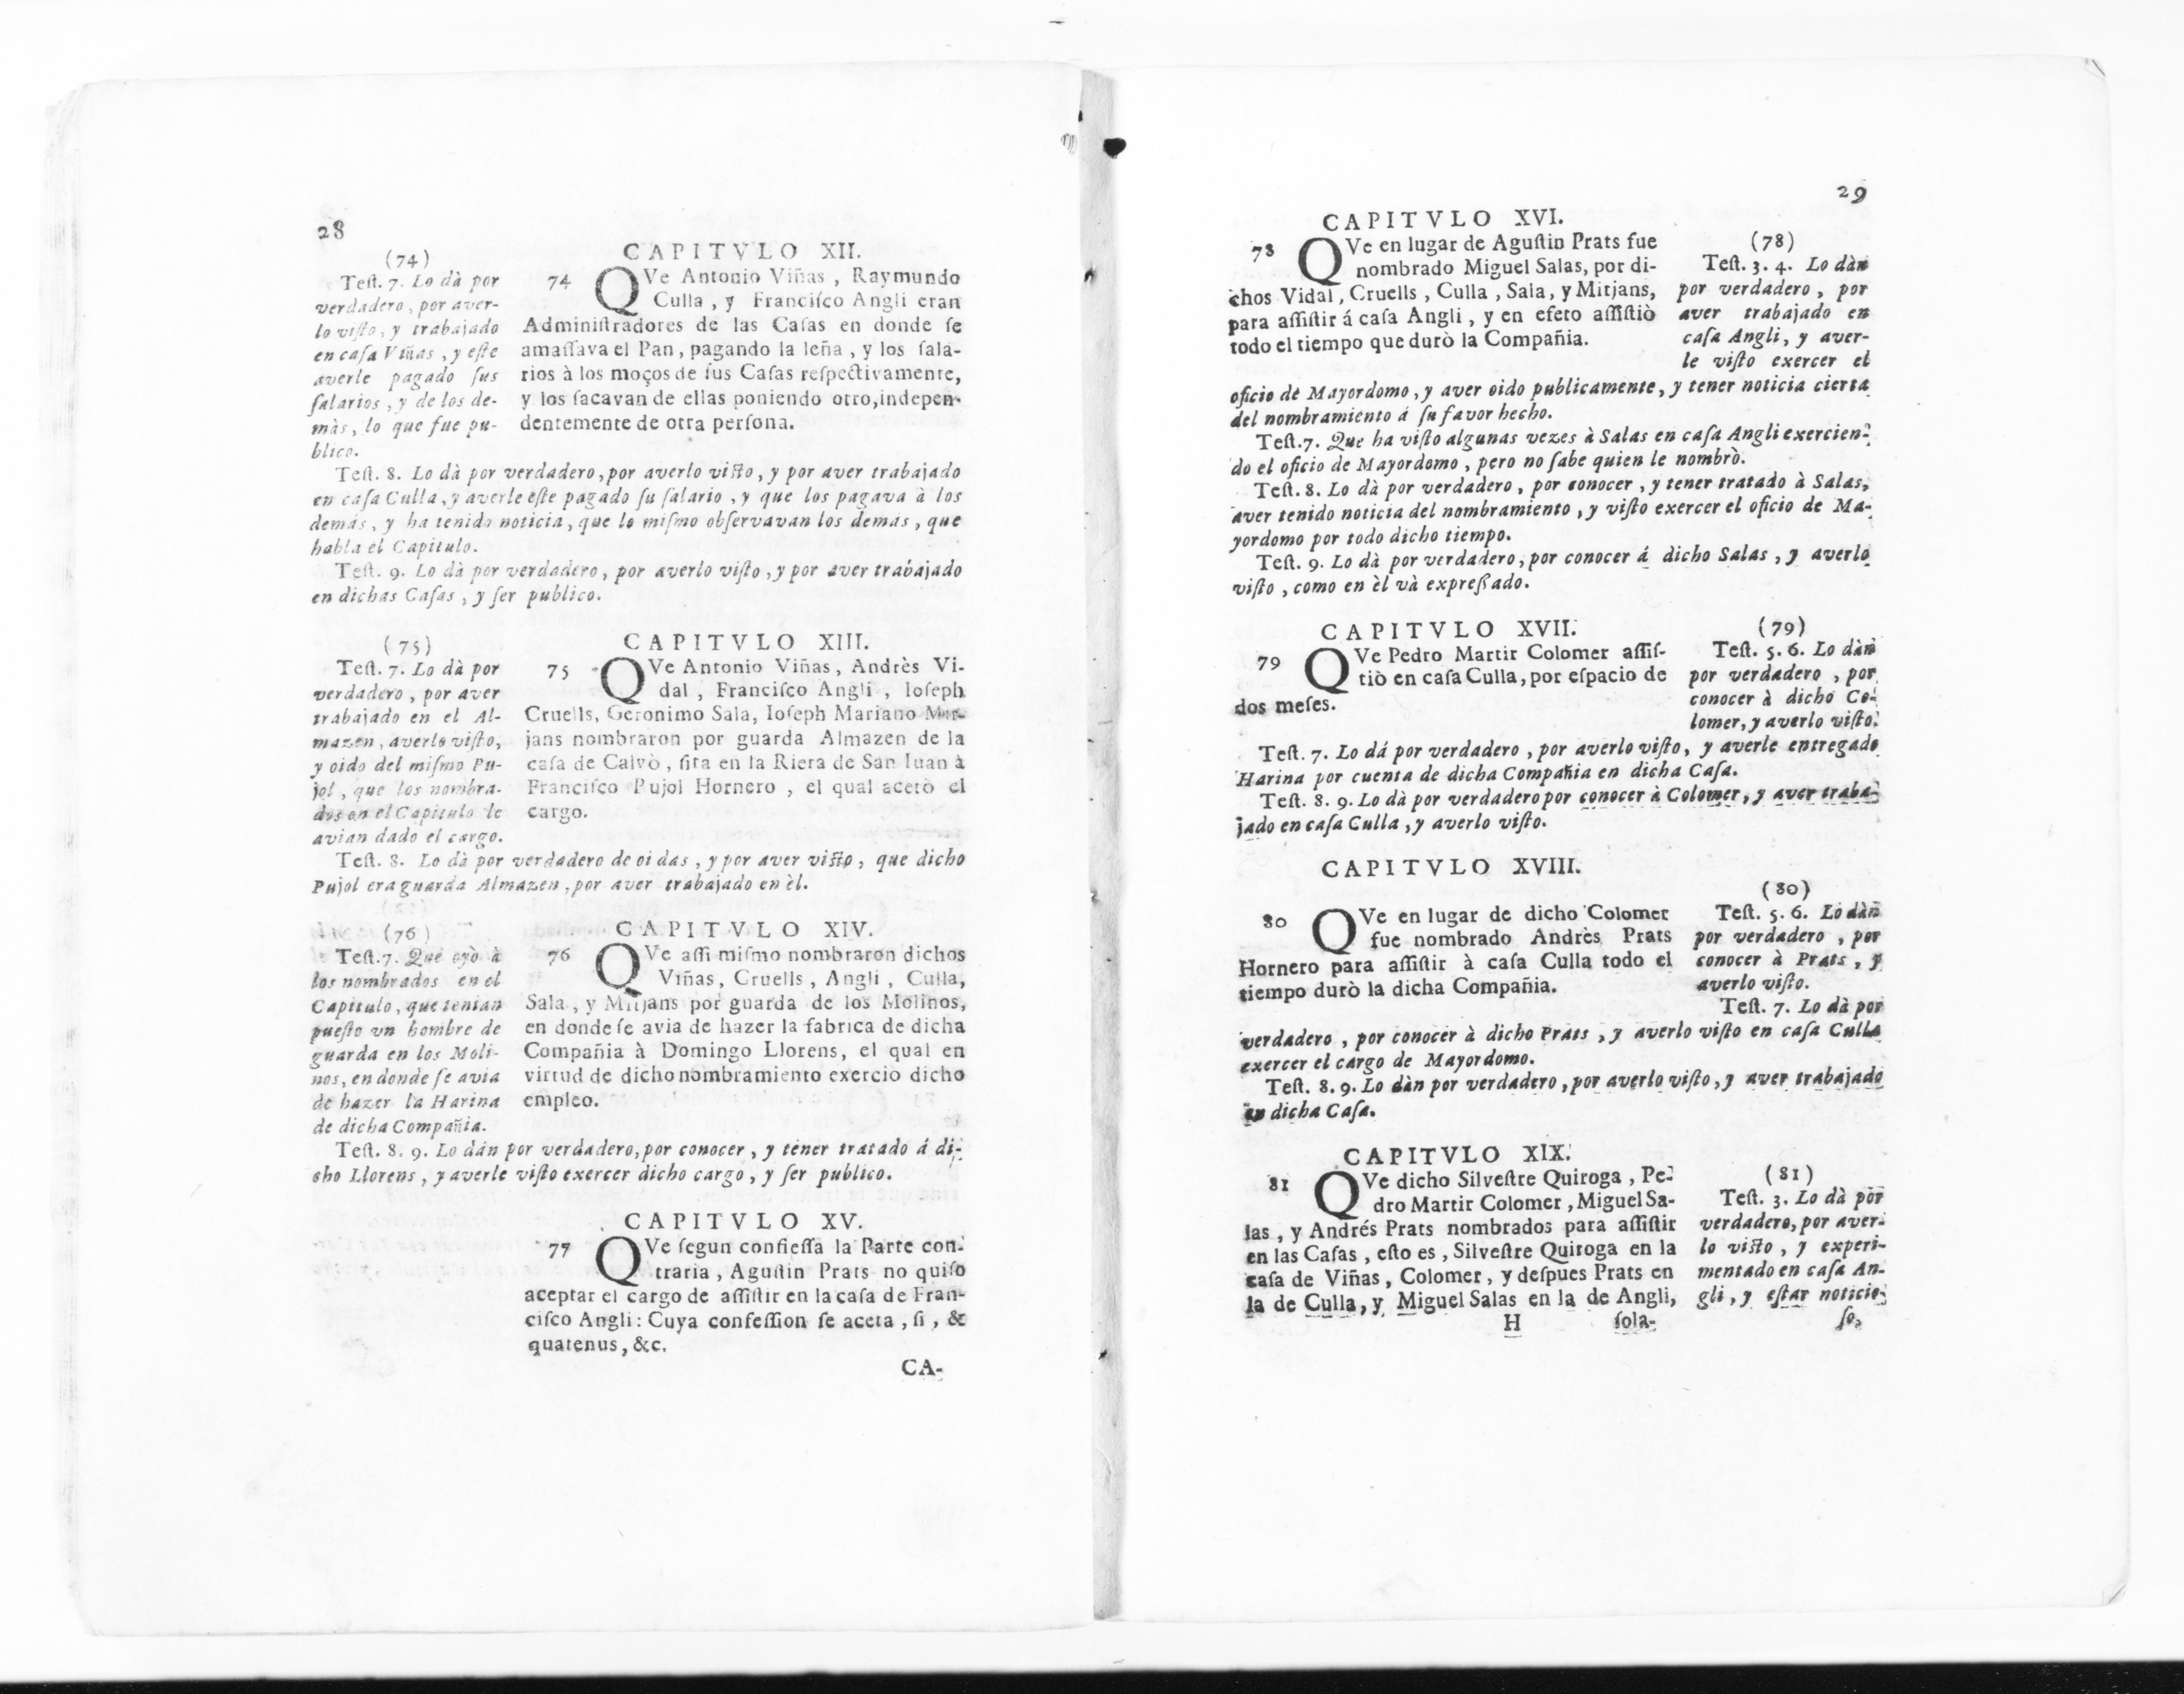 28
CAPITVLO XII.
(74)
Teſt. 7. Lo dà por
verdadero, por aver-
lo viſto, y trabajado
en caſa Viñas, y eſte
averle pagado ſus
ſalarios, y de los de-
màs, lo que fue pu-
blico.
74 QVe Antonio Viñas, Raymundo
Culla, y Franciſco Angli eran
Adminiſtradores de las Caſas en donde ſe
amaſſava el Pan, pagando la leña, y los ſala-
rios à los moços de ſus Caſas reſpectivamente,
y los ſacavan de ellas poniendo otro, indepen-
dentemente de otra perſona.
Teſt. 8. Lo dà por verdadero, por averlo viſto, y por aver trabajado
en caſa Culla, y averle eſte pagado ſu ſalario, y que los pagava à los
demás, y ha tenido noticia, que lo miſmo obſervavan los demas, que
habla el Capitulo.
Teſt. 9. Lo dà por verdadero, por averlo viſto, y por aver trabajado
en dichas Caſas, y ſer publico.
CAPITVLO XIII.
(75)
Teſt. 7. Lo dà por
verdadero, por aver
trabajado en el Al-
mazen, averlo viſto,
y oido del miſmo Pu-
jol, que los nombra-
dos en el Capitulo le
avian dado el cargo.
75 QVe Antonio Viñas, Andrès Vi-
dal, Franciſco Angli, Ioſeph
Cruells, Geronimo Sala, Ioſeph Mariano Mit-
jans nombraron por guarda Almazen de la
caſa de Calvò, ſita en la Riera de San Iuan à
Franciſco Pujol Hornero, el qual acetò el
cargo.
Teſt. 8. Lo dà por verdadero de oidas, y por aver viſto, que dicho
Pujol era guarda Almazen, por aver trabajado en èl.
CAPITVLO XIV.
(76)
Teſt. 7. Que oyò à
los nombrados en el
Capitulo, que tenian
pueſto vn hombre de
guarda en los Moli-
nos, en donde ſe avia
de hazer la Harina
de dicha Compañia.
76 QVe aſſi miſmo nombraron dichos
Viñas, Cruells, Angli, Culla,
Sala, y Mitjans por guarda de los Molinos,
en donde ſe avia de hazer la fabrica de dicha
Compañia à Domingo Llorens, el qual en
virtud de dicho nombramiento exercio dicho
empleo.
Teſt. 8. 9. Lo dàn por verdadero, por conocer, y tener tratado á di-
cho Llorens, y averle viſto exercer dicho cargo, y ſer publico.
CAPITVLO XV.
77 QVe ſegun confieſſa la Parte con-
traria, Aguſtin Prats no quiſo
aceptar el cargo de aſſiſtir en la caſa de Fran-
ciſco Angli: Cuya confeſſion ſe aceta, ſi, &
quatenus, &c.
CA-
29
CAPITVLO XVI.
78 QVe en lugar de Aguſtin Prats fue
nombrado Miguel Salas, por di-
chos Vidal, Cruells, Culla, Sala, y Mitjans,
para aſſiſtir á caſa Angli, y en efeto aſſiſtiò
todo el tiempo que durò la Compañia.
(78)
Teſt. 3. 4. Lo dàn
por verdadero, por
aver trabajado en
caſa Angli, y aver-
le viſto exercer el
oficio de Mayordomo, y aver oido publicamente, y tener noticia cierta
del nombramiento á ſu favor hecho.
Teſt. 7. Que ha viſto algunas vezes à Salas en caſa Angli exercien-
do el oficio de Mayordomo, pero no ſabe quien le nombrò.
Teſt. 8. Lo dà por verdadero, por conocer, y tener tratado à Salas,
aver tenido noticia del nombramiento, y viſto exercer el oficio de Ma-
yordomo por todo dicho tiempo.
Teſt. 9. Lo dà por verdadero, por conocer á dicho Salas, y averlo
viſto, como en èl và expreſſado.
CAPITVLO XVII.
79 QVe Pedro Martir Colomer aſſiſ-
tiò en caſa Culla, por eſpacio de
dos meſes.
(79)
Teſt. 5. 6. Lo dàn
por verdadero, por
conocer à dicho Co-
lomer, y averlo viſto.
Teſt. 7. Lo dá por verdadero, por averlo viſto, y averle entregado
Harina por cuenta de dicha Compañia en dicha Caſa.
Teſt. 8. 9. Lo dà por verdadero por conocer à Colomer, y aver traba-
jado en caſa Culla, y averlo viſto.
CAPITVLO XVIII.
80 QVe en lugar de dicho Colomer
fue nombrado Andrès Prats
Hornero para aſſiſtir à caſa Culla todo el
tiempo durò la dicha Compañia.
(80)
Teſt. 5. 6. Lo dàn
por verdadero, por
conocer à Prats, y
averlo viſto.
Teſt. 7. Lo dà por
verdadero, por conocer à dicho Prats, y averlo viſto en caſa Culla
exercer el cargo de Mayordomo.
Teſt. 8. 9. Lo dàn por verdadero, por averlo viſto, y aver trabajado
en dicha Caſa.
CAPITVLO XIX.
81 QVe dicho Silveſtre Quiroga, Pe-
dro Martir Colomer, Miguel Sa-
las, y Andrés Prats nombrados para aſſiſtir
en las Caſas, eſto es, Silveſtre Quiroga en la
caſa de Viñas, Colomer, y deſpues Prats en
la de Culla, y Miguel Salas en la de Angli,
(81)
Teſt. 3. Lo dà por
verdadero, por aver-
lo viſto, y experi-
mentado en caſa An-
gli, y eſtar noticio-
H
ſola-
ſo,